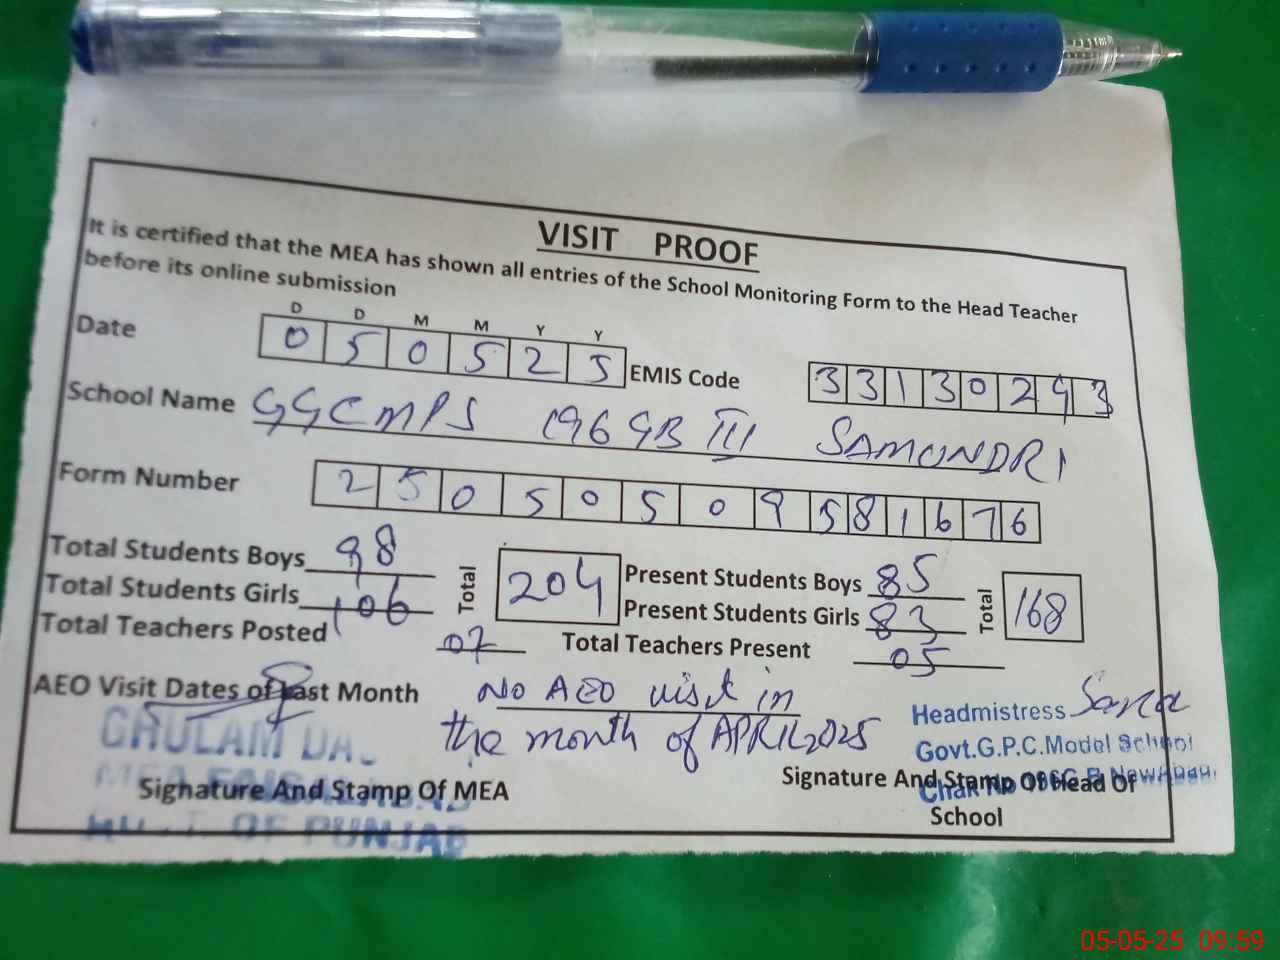 VISIT PROOF
It is certified that the MEA has shown all entries of the School Monitoring Form to the Head Teacher
before its online submission
D D M M Y Y
Date 0 5 0 5 2 5 EMIS Code 3 3 1 3 0 2 9 3
School Name GGCMPS 196 GB III SAMUNDRI
Form Number 2 5 0 5 0 5 0 9 5 8 1 6 7 6
Total Students Boys 98 Total 204 Present Students Boys 85 Total 168
Total Students Girls 106 Present Students Girls 83
Total Teachers Posted 07 Total Teachers Present 05
AEO Visit Dates of Last Month No AEO visit in
the month of APRIL 2025
Headmistress Sana
Govt.G.P.C.Model School
Chak No
GHULAM
MEA
OF PUNJAB
Signature And Stamp Of MEA
Signature And Stamp Of Head Of
School
05-05-25 09:59